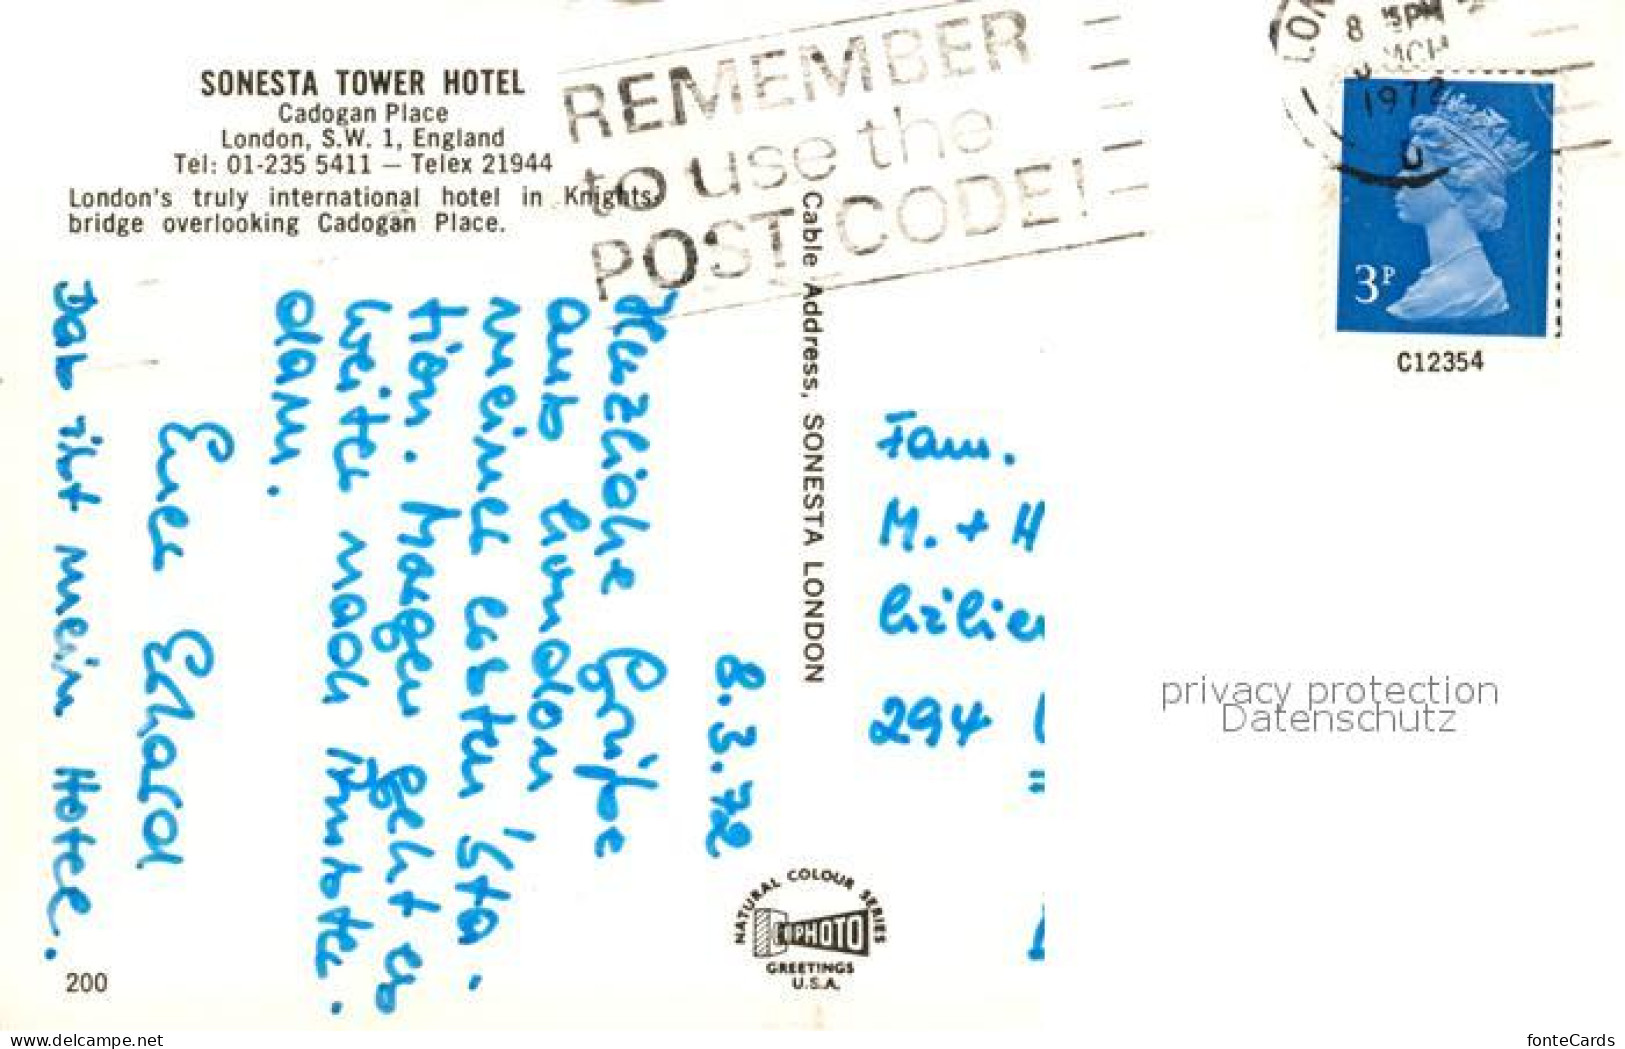 SONESTA TOWER HOTEL
Cadogan Place
London, S.W. 1, England
Tel: 01-235 5411 — Telex 21944
London's truly international hotel in Knights-
bridge overlooking Cadogan Place.
REMEMBER
to use the
POST CODE!
8 15PM
MCH
1972
3P
C12354
Cable Address, SONESTA LONDON
8.3.72
Herzliche Grüße
aus London
meiner ersten Sta-
tion. Morgen geht es
weiter nach
dann.
Euer Ehard
Das ist mein Hotel.
Fam.
M. + H
294
NATURAL COLOUR SERIES
GREETINGS
U.S.A.
200
privacy protection
Datenschutz
www.delcampe.net
fonteCards